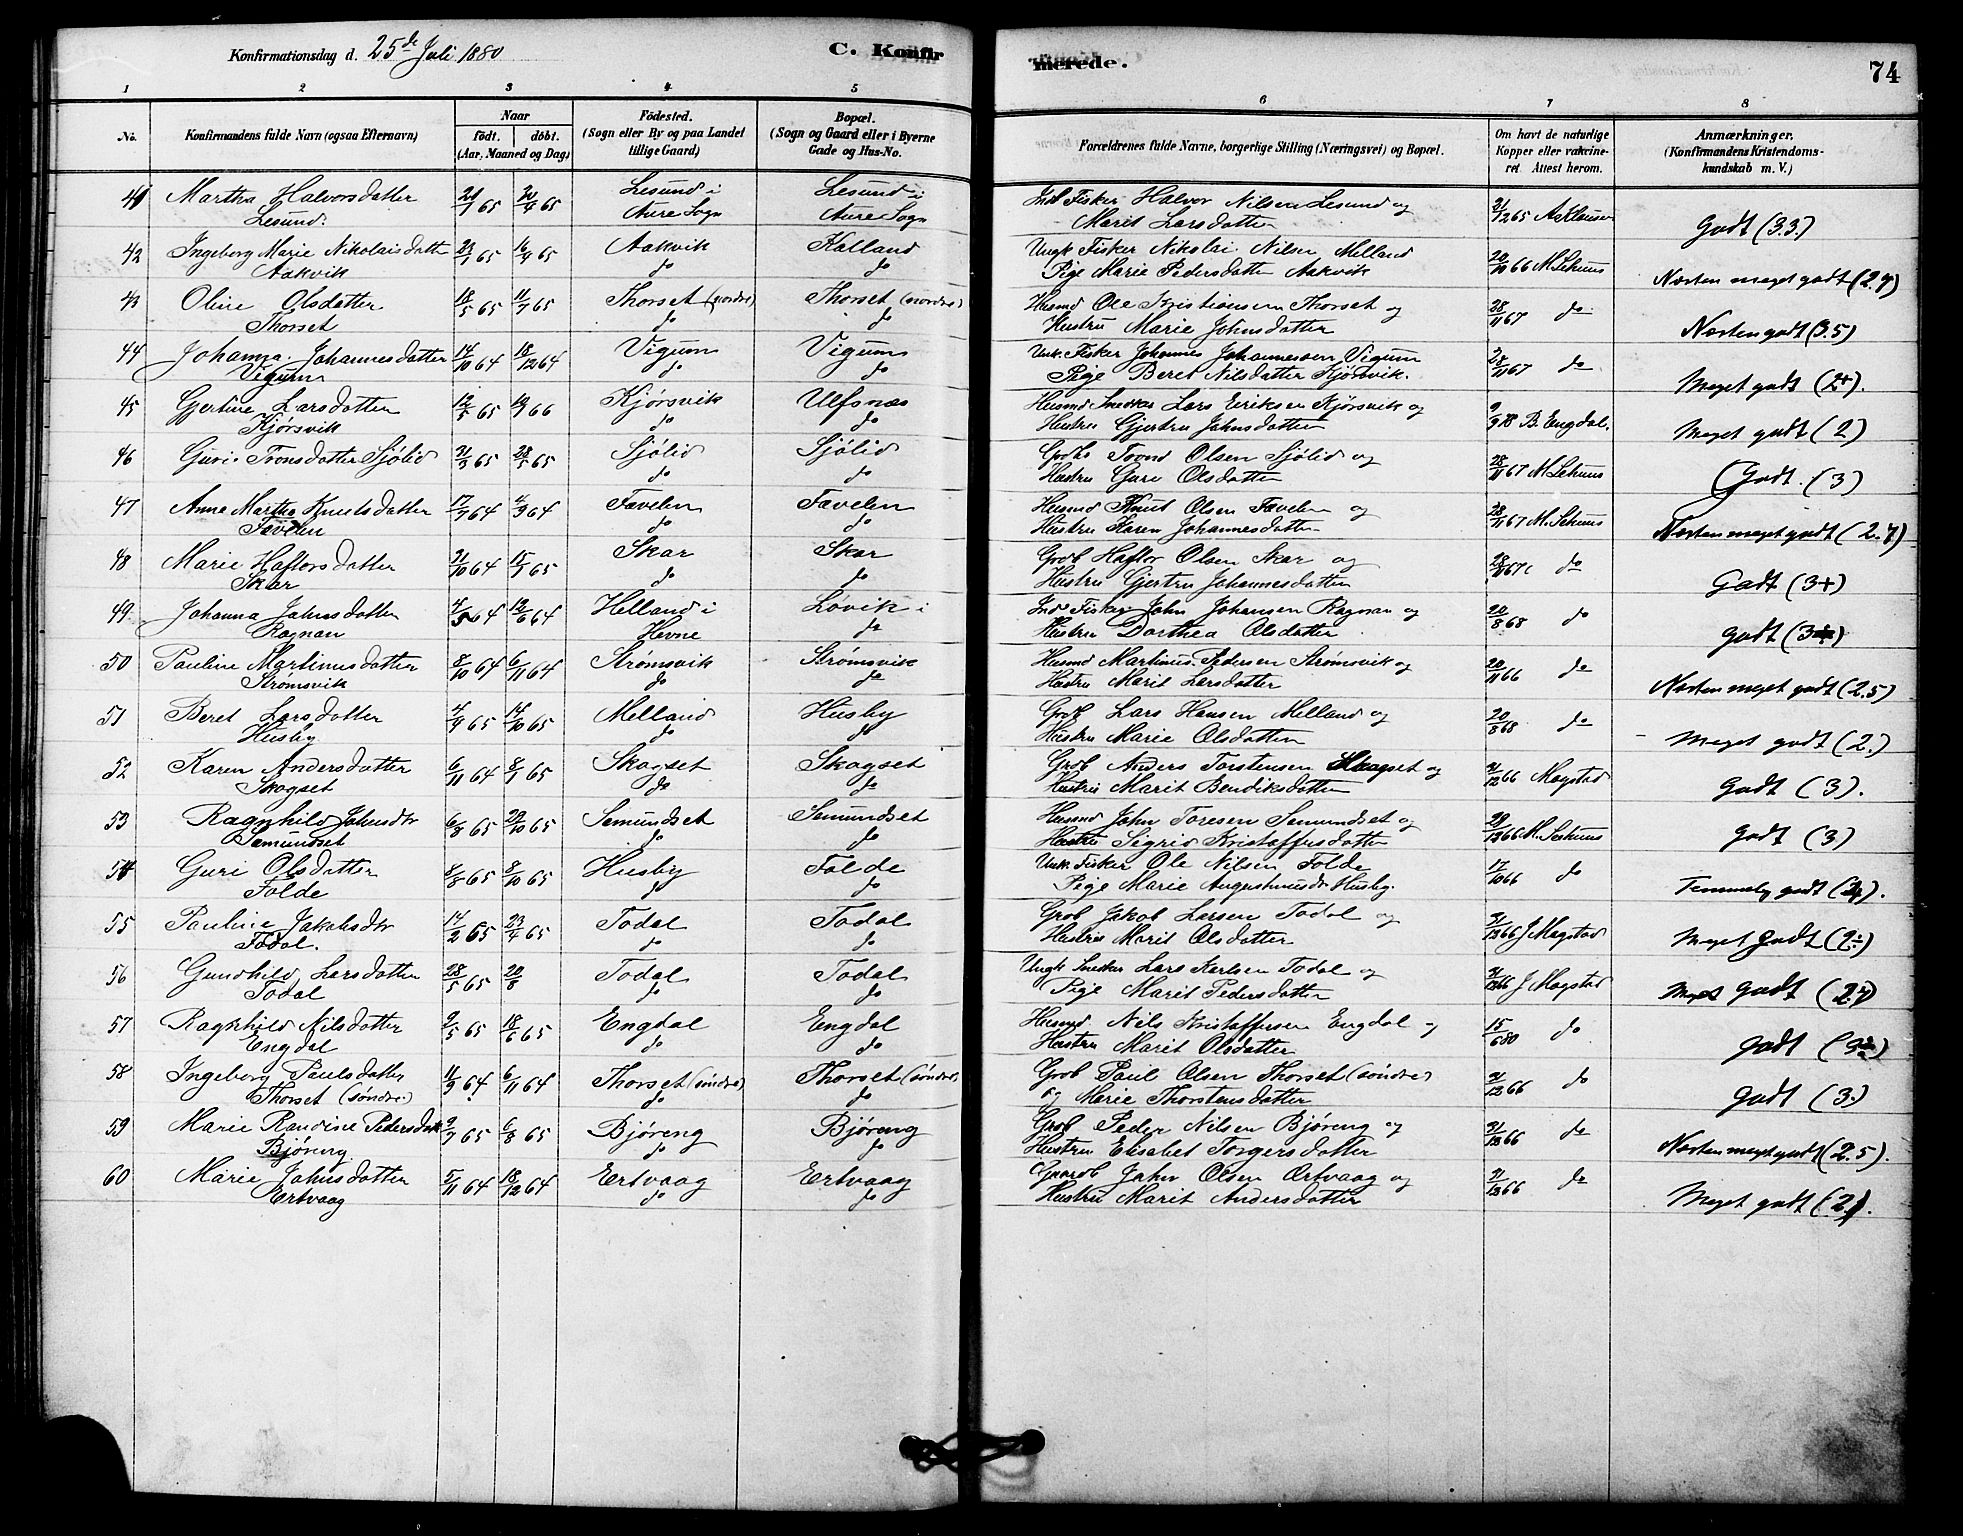 Konfirmationsdag d. 25de Juli 1880
C. Konfir
merede.
74
1 2 3 4 5 6 7 8
No. Konfirmandens fulde Navn (ogsaa Efternavn) Naar født. døbt. (Aar, Maaned og Dag) Fødested. (Sogn eller By og paa Landet tillige Gaard) Bopæl. (Sogn og Gaard eller i Byerne Gade og Hus-No. Forældrenes fulde Navne, borgerlige Stilling (Næringsvei) og Bopæl. Om havt de naturlige Kopper eller vakcineret Attest herom. Anmærkninger. (Konfirmandens Kristendomskundskab m. V.)
41 Martha Halvorsdatter Lesund i Lesund i Fisker Halvor Nilsen Lesund og
Lesund. Aure Sogn Aure Sogn Marit Larsdatter Godt (3.3)
42 Ingeborg Marie Nikolaisdatter 23/1 65 16/4 65 Aakvik Kalland Ungk Fisker Nikolai Nilsen Melland
Aakvik do do Pige Marie Pedersdatter Aakvik Næsten meget godt (2.7)
43 Oline Olsdatter 18/5 65 11/7 65 Thorset (nordre) Thorset (nordre) Husmd Ole Kristiansen Thorset og 28/11 67 do
Thorset do do Hustru Marie Johnsdatter Næsten godt (3.5)
44 Johanna Johannesdatter 14/10 64 18/12 64 Vigum Vigum Unk. Fisker Johannes Johannessen Vigum 28/11 67 do
Vigum do do Pige Beret Nilsdatter Kjørsvik. Meget godt (2+).
45 Gjertine Larsdatter 12/5 65 Kjørsvik Ulfsnæs Husmd Snedker Lars Eriksen Kjørsvik og B. Engdal.
Kjørsvik do do Hustru Gjertru Jahnsdatter Meget godt (2)
46 Guri Tronsdatter Sjølid 21/3 65 28/5 65 Sjølid Sjølid Trond Olsen Sjølid og 28/11 67
do do Hustru Guri Olsdatter Godt. (3)
47 Anna Martha Knutsdatter 17/7 64 4/9 64 Favelen Favelen Husmd Knut Olsen Favelen og 28/11 67
Favelen do do Hustru Karen Johannesdatter Næsten meget godt (2.7)
48 Marie Haftorsdatter 21/10 64 15/1 65 Skar Skar Grbr Haftor Olsen Skar og 28/11 67 do
Skar do do Hustru Gjertru Johannesdatter Godt (3+)
49 Johanna Jahnsdatter 12/6 64 Helland i Løvik i Fisker John Johansen Ragnan og 20/8 68 do
Ragnan Hevne do Hustru Dorthea Olsdatter godt
50 Pauline Martinusdatter 8/10 64 6/11 64 Strømsvik Strømsvik Husmd Martinus Pedersen Strømsvik og 20/11 66 do
Strømsvik do do Hustru Marit Larsdatter Næsten meget godt (2.5)
51 Beret Larsdatter 4/9 65 14/10 65 Melland Husby Grbr Lars Hansen Melland og 20/8 68 do
Husby do do Hustru Marie Olsdatter Meget godt (2.)
52 Karen Andersdatter 6/11 64 8/1 65 Skogset Skogset Grbr Anders Torstensen Skogset og 31/12 66 Mogstad
Skogset do do Hustru Marit Bendiksdatter Godt (3).
53 Ragnhild Jahnsdtr 6/8 65 22/10 65 Semundset Semundset Husmd John Toresen Semundset og
Semundset do do Hustru Sigrid Kristoffersdatter Godt (3)
54 Guri Olsdatter 8/10 65 Husby Folde Unk. Fisker Ole Nilsen Folde 17/10 66 do
Folde do do Pige Marie Augustinusdr Husby. Temmelig godt
55 Pauline Jakobsdtr 14/2 65 23/4 65 Todal Todal Grbr Jakob Larsen Todal og 31/12 66 J Mogstad
Todal. do do Hustru Marit Olsdatter Meget godt (2÷)
56 Gunhild Larsdatter 28/5 65 20/8 Todal Todal Ungk Snedker Lars Karlsen Todal og 31/12 66 J Mogstad
Todal do do Pige Marit Pedersdatter Meget godt
57 Ragnhild Nilsdatter 2/5 65 18/6 65 Engdal Engdal Husmd Nils Kristoffersen Engdal og 15/6 80 do
Engdal do do Hustru Marit Olsdatter godt
58 Ingeborg Paulsdatter 11/9 64 6/11 64 Thorset (søndre) Thorset (søndre) Grbr Paul Olsen Thorset (søndre) 31/12 66 do
Thorset (søndre) do do og Marie Thorstensdatter Godt (3.)
59 Marie Randine Pedersdatter 3/7 65 6/8 65 Bjøreng Bjøreng Grbr Peder Nilsen Bjøreng og 31/12 66 do
Bjøreng do do Hustru Elisabet Torgersdatter Næsten meget godt (2.5).
60 Marie Jahnsdatter 5/11 64 18/12 64 Ertvaag Ertvaag Gaardb Jahn Olsen Ertvaag og 31/12 66 do
Ertvaag do do Hustru Marit Andersdatter Meget godt (2).